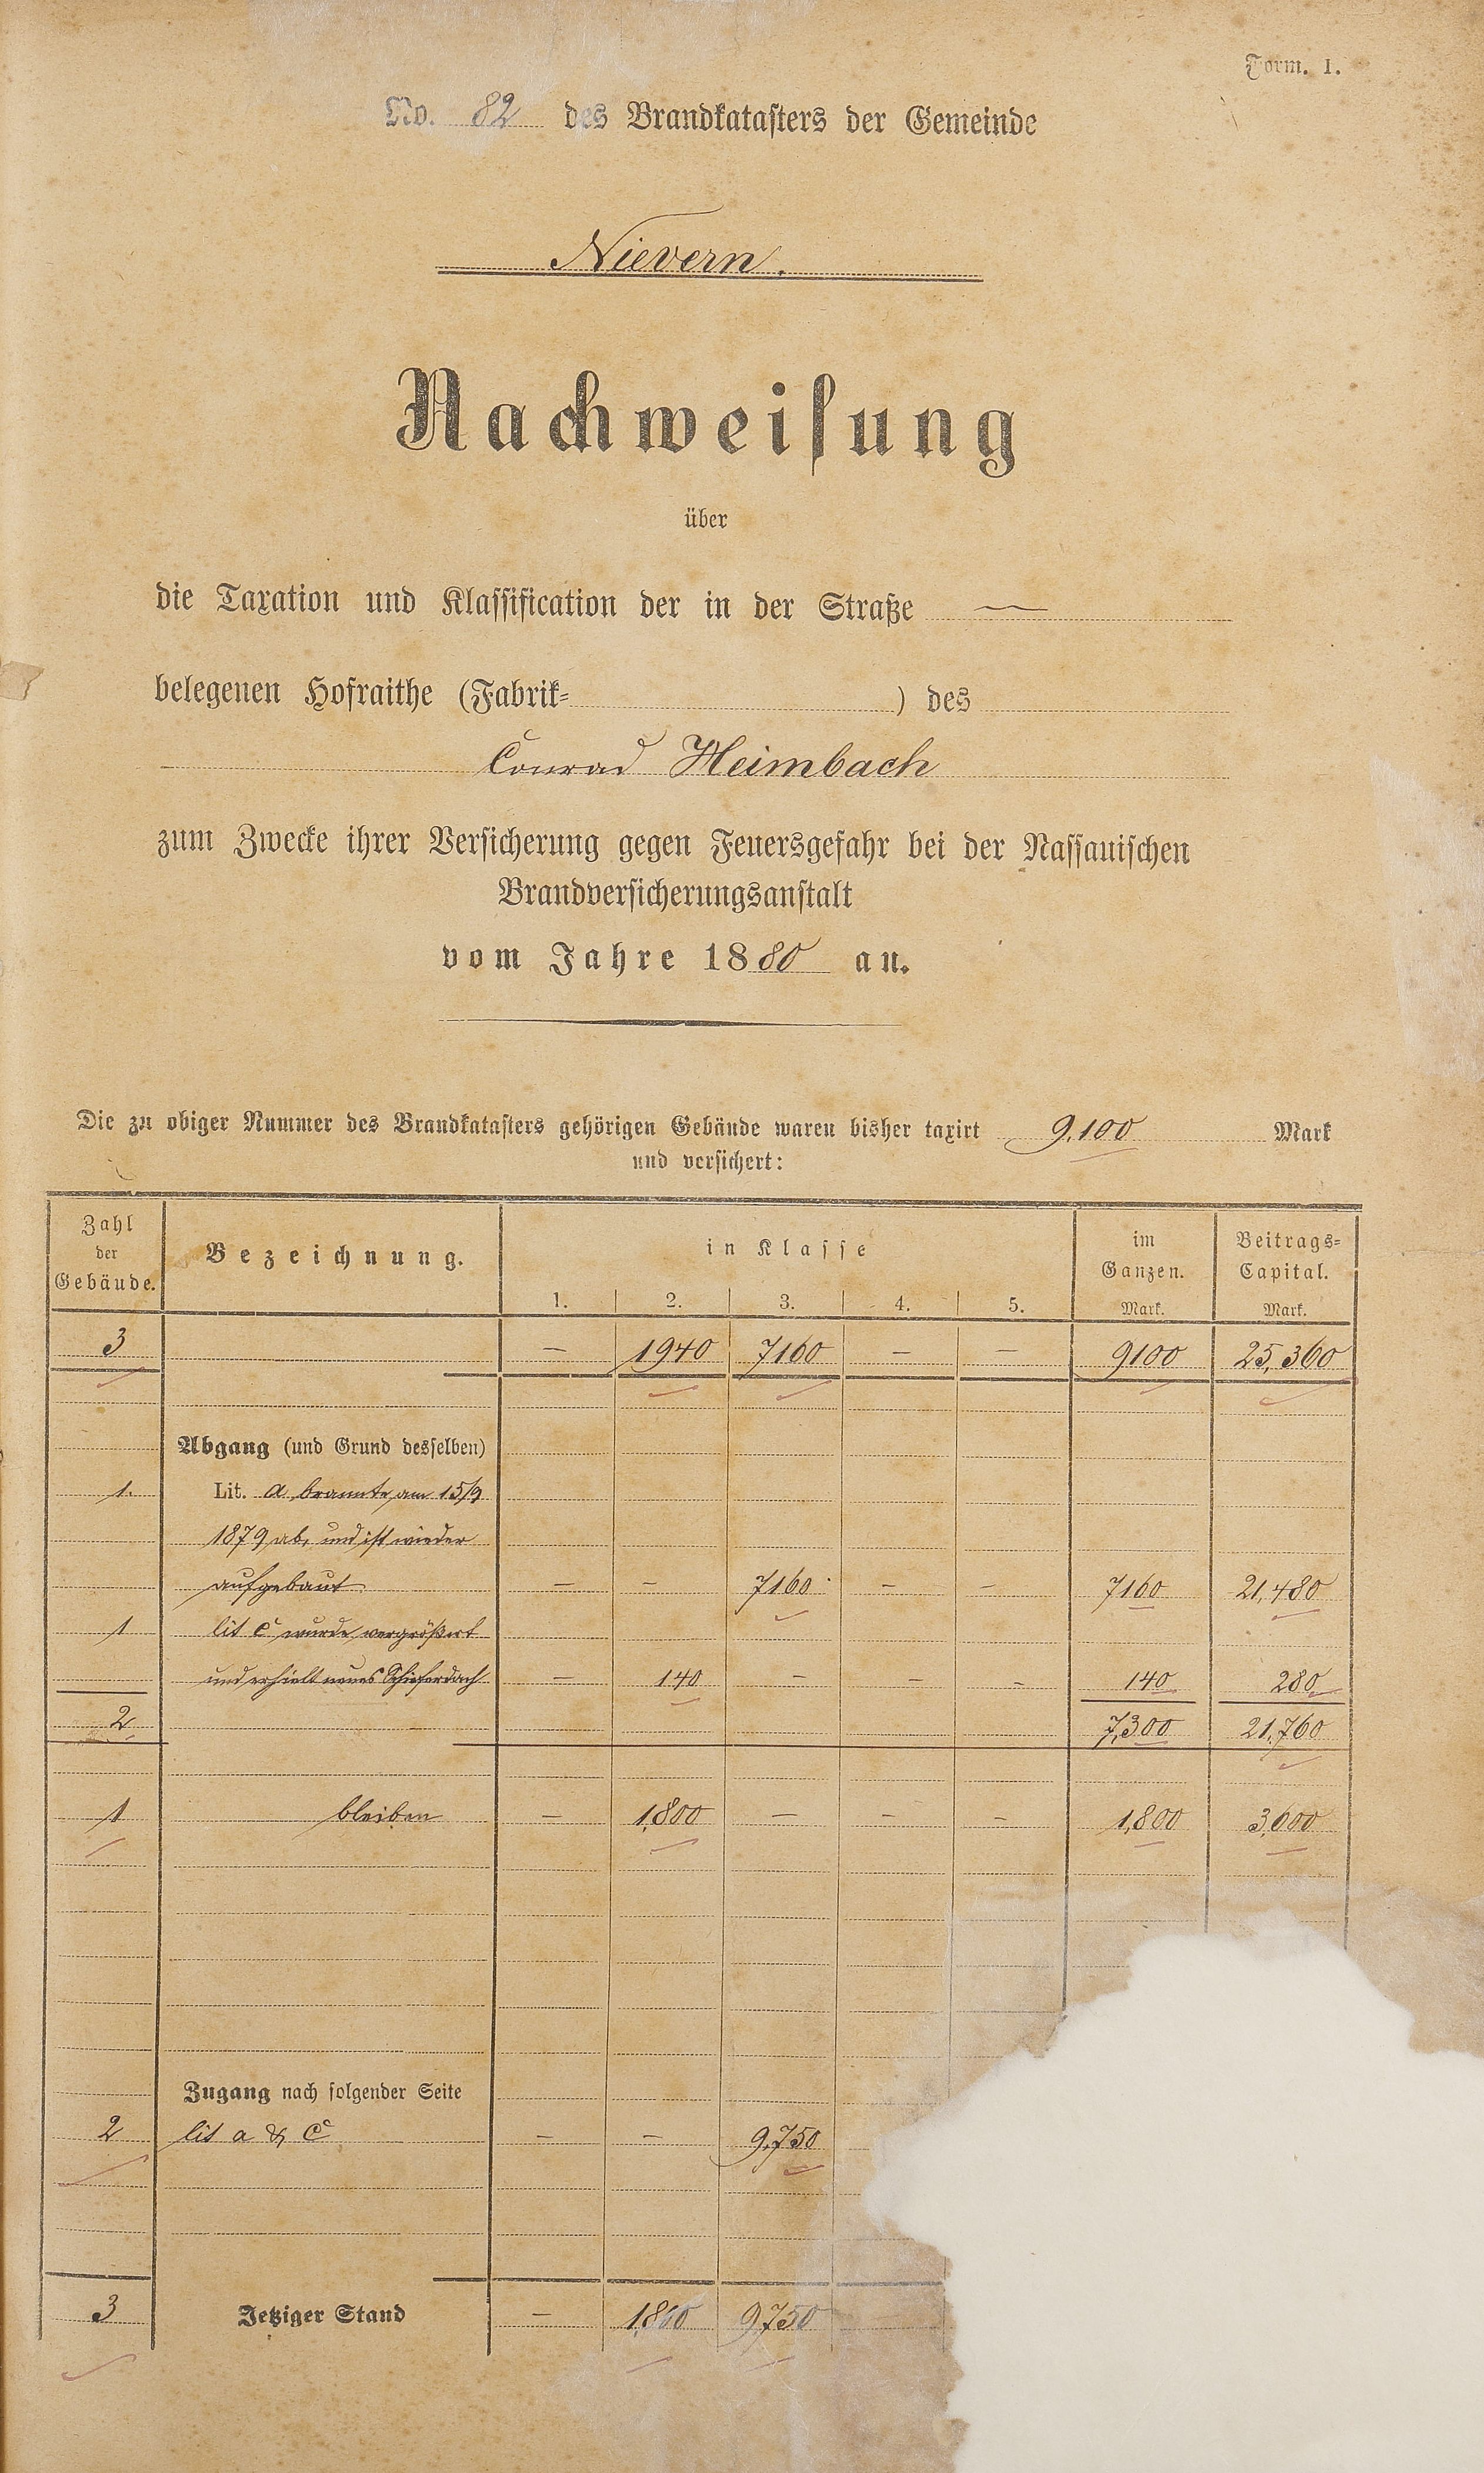 Form. I.
No. 82 des Brandkatasters der Gemeinde
Nievern.
Nachweisung
über
die Taxation und Klassification der in der Straße —
belegenen Hofraithe (Fabrik- ) des
Conrad Heimbach
zum Zwecke ihrer Versicherung gegen Feuersgefahr bei der Nassauischen
Brandversicherungsanstalt
vom Jahre 1880 an.
Die zu obiger Nummer des Brandkatasters gehörigen Gebäude waren bisher taxirt 9,100 Mark
und versichert:
Zahl der Gebäude. Bezeichnung. in Klasse im Ganzen. Beitrags-Capital.
1. 2. 3. 4. 5. Mark. Mark.
3 — 1940 7160 — — 9100 25,360
Abgang (und Grund desselben)
1. Lit. a, brannte am 15/9
1879 ab, und ist wieder
aufgebaut — — 7160 — — 7160 21,480
1 lit c wurde vergrößert
und erhielt neues Schieferdach — 140 — — — 140 280
2 7,300 21,760
1 bleiben — 1,800 — — — 1,800 3,600
Zugang nach folgender Seite
2 lit a & c — — 9,750
3 Jetziger Stand — 1,800 9,750